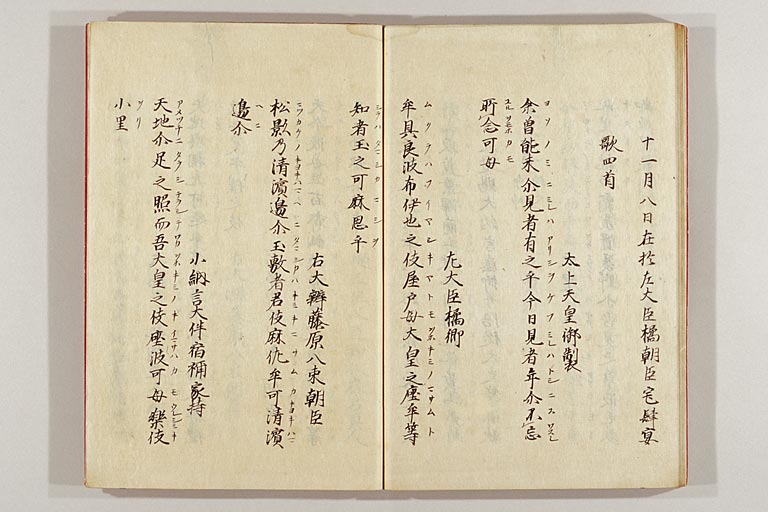 十一月八日在於左大臣橘朝臣宅肆宴
歌四首
太上天皇御製
余曽能未尒見者有之乎今日見者年尒不忘
所念可母
左大臣橘卿
牟具良波布伊也之伎屋戸母大皇之座牟等
知者玉之可麻思乎
右大辨藤原八束朝臣
松影乃清濱邊尒玉敷者君伎麻佐牟可清濱
邊尒
少納言大伴宿祢家持
天地尒足之照而吾大皇之伎座波可母樂伎
小里